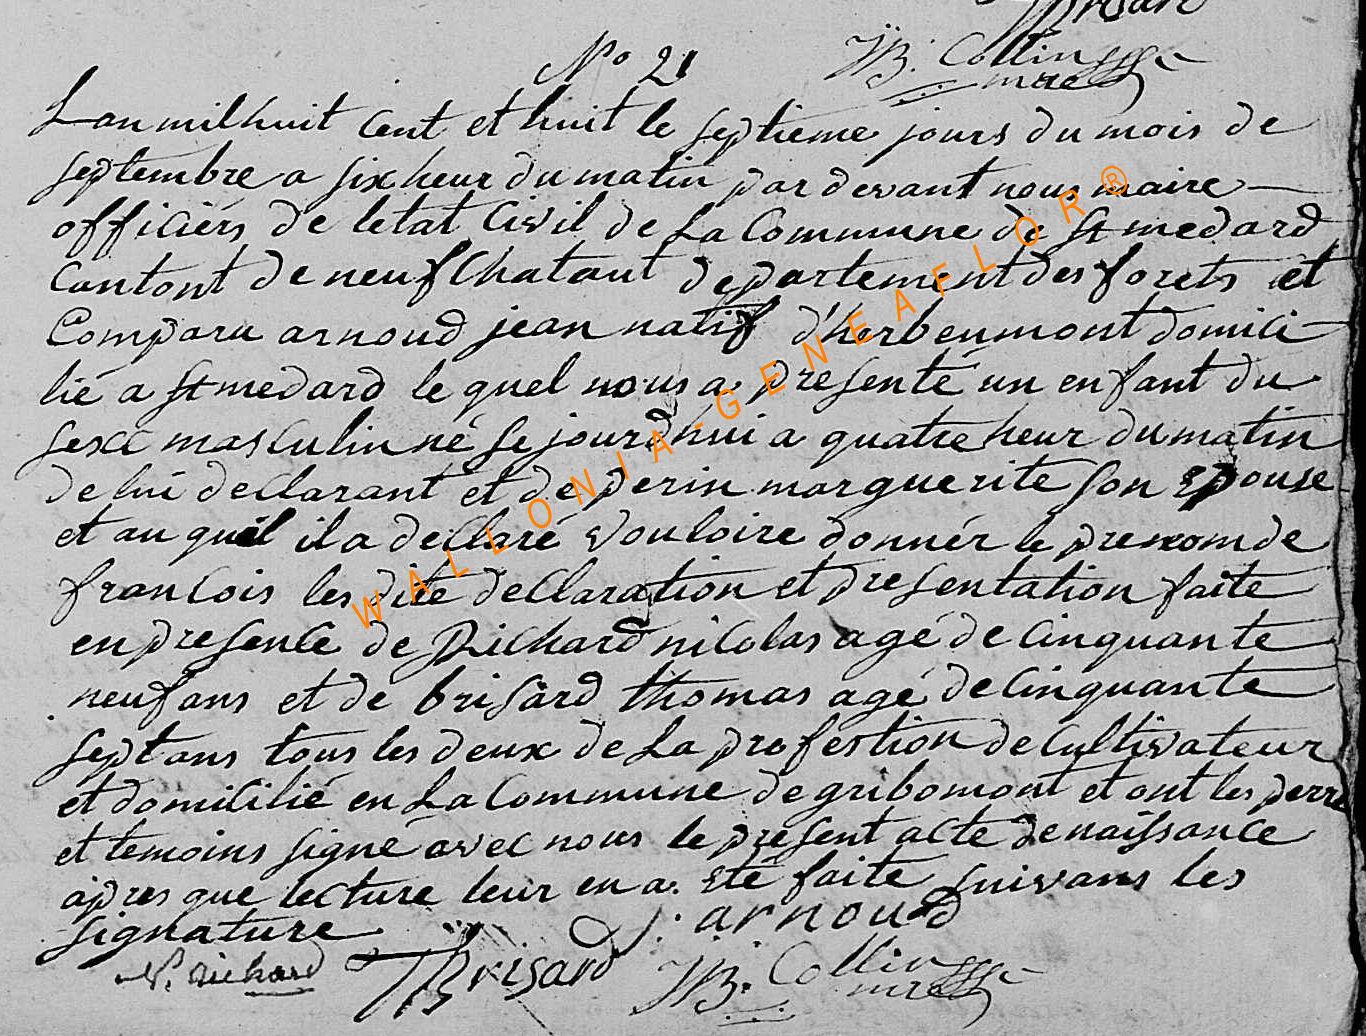 Brisard
N° 21
JB. Collin
mre
Lan mil huit cent et huit le septieme jours du mois de
septembre a six heur du matin par devant nous maire
officiers de letat Civil de La Commune de St medard
Cantont de neufchataut departement des forets et
Comparu arnoud jean natif d'herbeumont domici
lié a St medard le quel nous a presenté un enfant du
sexe masculin né se jourdhui a quatre heur du matin
de lui declarant et de perin marguerite son Epouse
et au quel il a declaré vouloire donnér le prenom de
francois les dite declaration et presentation faite
en presence de Richard nicolas agé de cinquante
neuf ans et de brisard thomas agé de cinquante
sept ans tous les deux de La profestion de cultivateur
et domicilié en La Commune de gribomont et ont les perre
et temoins signé avec nous le present acte de naissance
apres que lecture leur en a eté faite suivans les
signature
J. arnoud
N. richard
TBrisard
JB. Collin
mre
WALLONIA-GENEAFLOR®